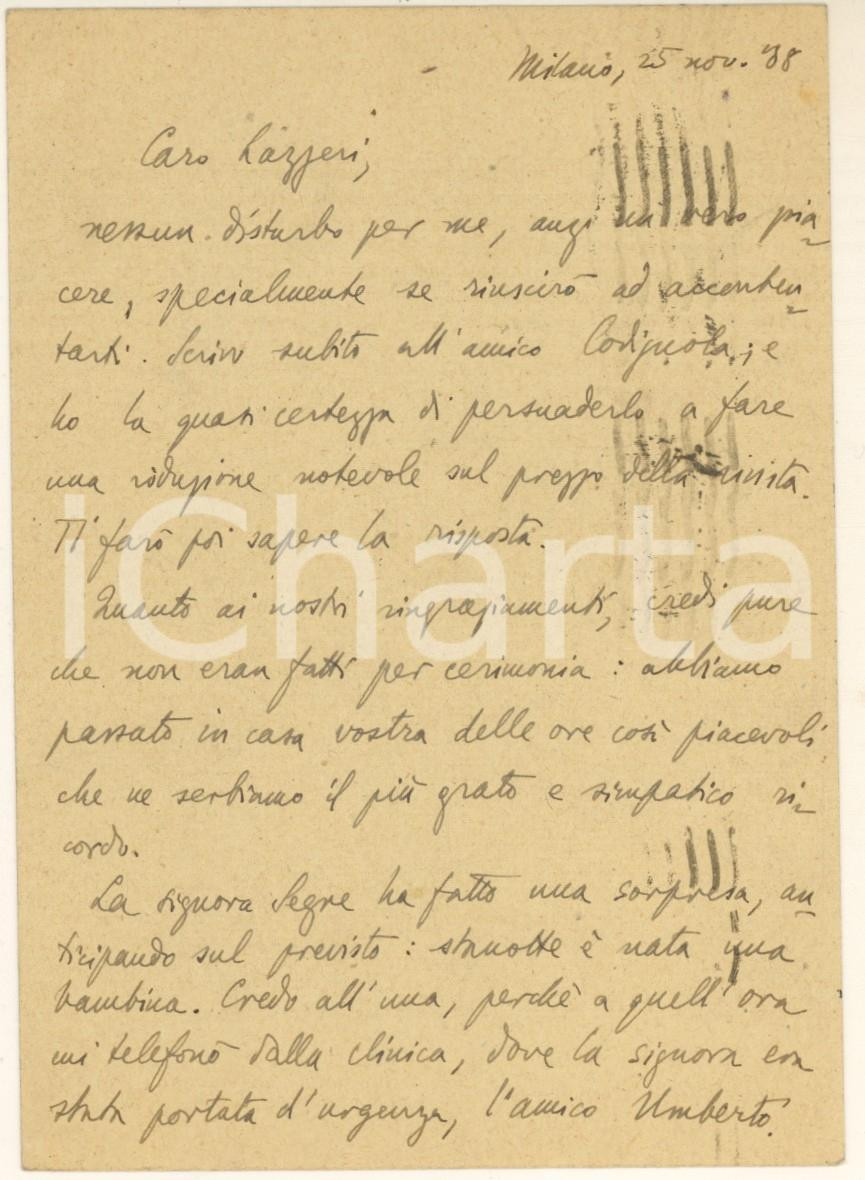 Milano, 25 nov. '38
Caro Lazzeri,
nessun disturbo per me, anzi un vero pia-
cere, specialmente se riuscirò ad acconten-
tarti. Scrivo subito all'amico Codignola; e
ho la quasi certezza di persuaderlo a fare
una riduzione notevole sul prezzo della rivista.
Ti farò poi sapere la risposta.
iCharta
Quanto ai nostri ringraziamenti, credi pure
che non eran fatti per cerimonia: abbiamo
passato in casa vostra delle ore così piacevoli
che ne serbiamo il più grato e simpatico ri-
cordo.
La signora Segre ha fatto una sorpresa, an-
ticipando sul previsto: stanotte è nata una
bambina. Credo all'una, perchè a quell'ora
mi telefonò dalla clinica, dove la signora era
stata portata d'urgenza, l'amico Umberto.